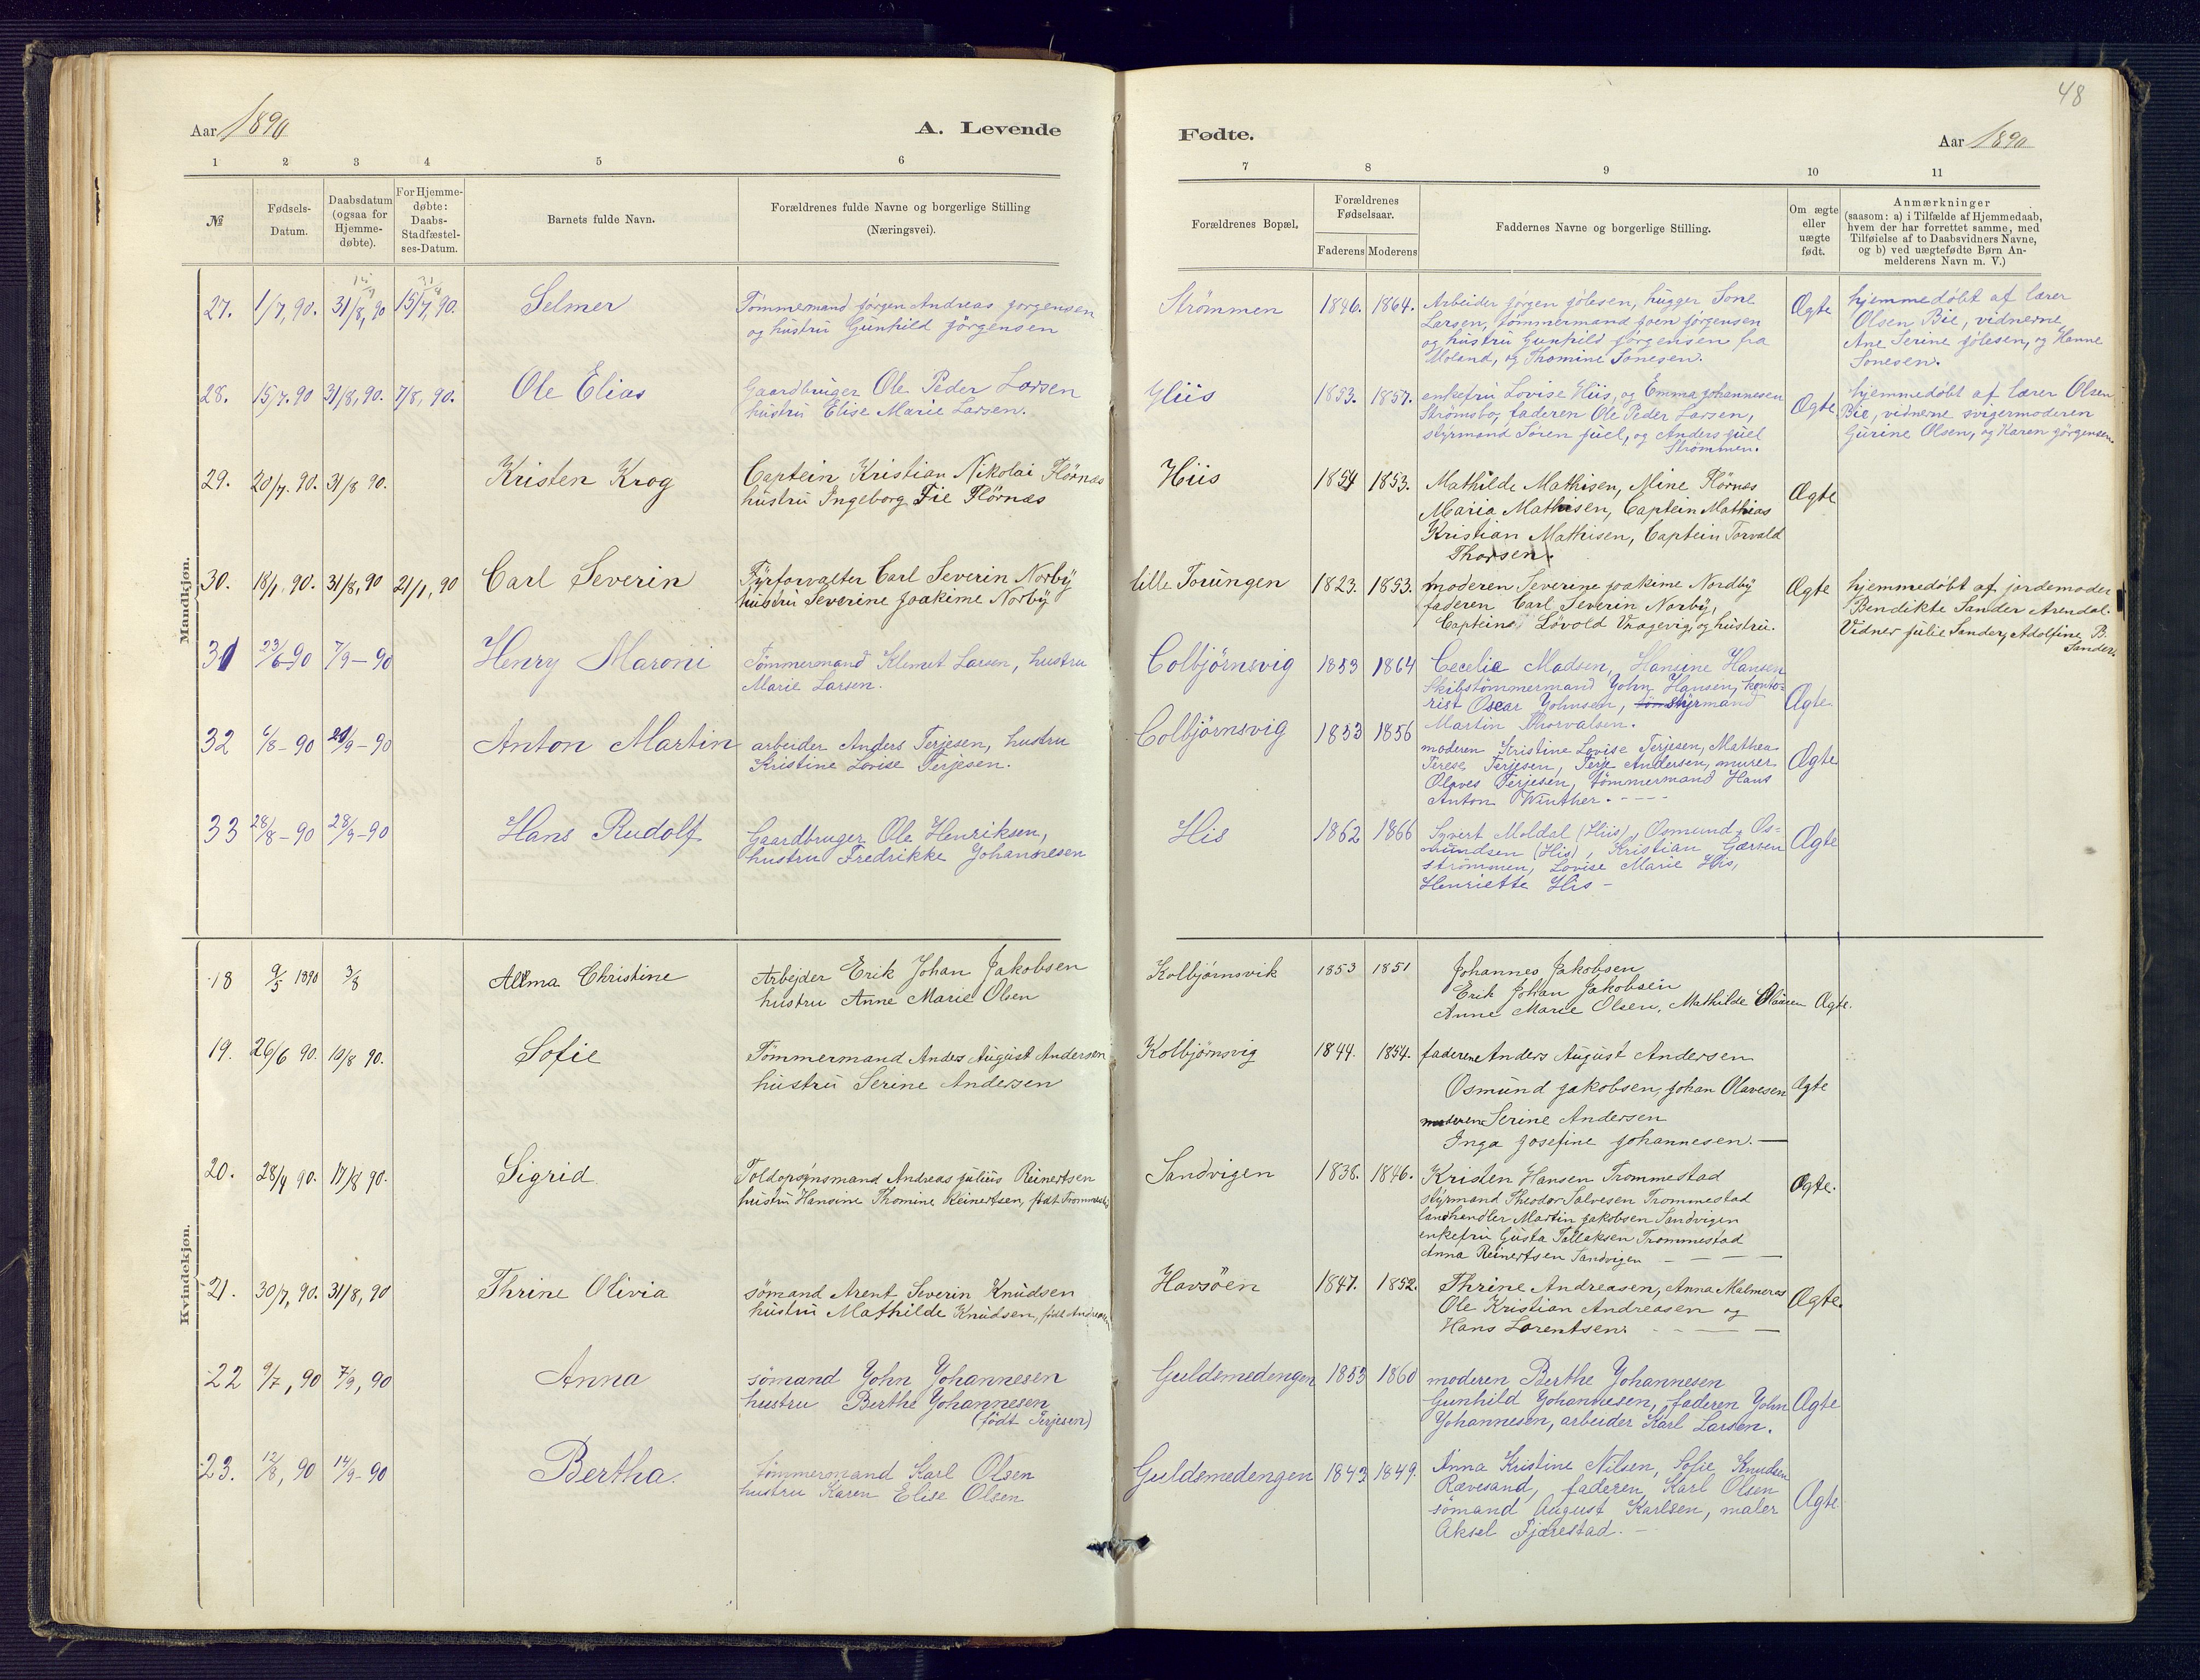 48
Aar 1890
A. Levende
Fødte.
Aar 1890
1 2 3 4 5 6
7 8 9 10 11
№
Fødsels-
Datum.
Daabsdatum
(ogsaa for
Hjemme-
døbte).
For Hjemme-
døbte:
Daabs-
Stadfæstel-
ses-Datum.
Barnets fulde Navn.
Forældrenes fulde Navne og borgerlige Stilling
(Næringsvei).
Forældrenes Bopæl.
Forældrenes
Fødselsaar.
Faderens Moderens
Faddernes Navne og borgerlige Stilling.
Om ægte
eller
uægte
født.
Anmærkninger
(saasom: a) i Tilfælde af Hjemmedaab,
hvem der har forrettet samme, med
Tilføielse af to Daabsvidners Navne,
og b) ved uægtefødte Børn An-
melderens Navn m. V.)
Mandkjøn.
27. 1/7, 90. 31/8, 90 15/7, 90. Selmer
Tömmermand Jørgen Andreas Jørgensen
og hustru Gunhild Jörgensen
Strömmen 1846. 1864.
Arbeider Jörgen Jölesen, hugger Sone
Larsen, tömmermand Joen Jörgensen
og hustru Gunhild Jörgensen fra
Moland, og Thomine Sonesen.
Ægte
hjemmedöbt af lærer
Olsen Bie, vidnerne
Ane Serine Jölesen, og Hanne
Sonesen.
28. 15/7. 90 31/8, 90. 7/8, 90. Ole Elias
Gaardbruger Ole Peder Larsen
hustru Elise Marie Larsen.
Hiis 1853. 1857.
enkefru Lovise Hiis, og Emma Johannesen
Strömsbo, faderen Ole Peder Larsen,
styrmand Sören Juel, og Anders Juel
Strömmen.
Ægte
hjemmedöbt af lærer Olsen
Bie, vidnerne svigermoderen
Gurine Olsen, og Karen Jörgensen.
29. 20/7. 90. 31/8 90. Kristen Krog
Captein Kristian Nikolai Flörnæs
hustru Ingeborg Fie Flörnæs
Hiis 1854 1853.
Mathilde Mathisen, Mine Flörnes
Maria Mathisen, Captein Mathias
Kristian Mathisen, Captein Torvald
Thorsen.
Ægte
30. 18/1, 90. 31/8, 90 21/1, 90 Carl Severin
Fyrforvalter Carl Severin Norby
hustru Severine Joakime Norby
lille Torungen 1823. 1853.
moderen Severine Joakime Nordby
faderen Carl Severin Norby,
Captein Lövold Vragevig, og hustru.
Ægte
hjemmedöbt af jordemoder
Bendikte Sander Arendal.
Vidner Julie Sander, Adolfine B.
Sander.
31 23/6-90 7/9-90 Henry Maroni
Tömmermand Klemet Larsen, hustru
Marie Larsen.
Colbjörnsvig 1853 1864
Cecelie Madsen, Hansine Hansen
Skibstömmermand John Hansen, konto-
rist Oscar Johnsen, styrmand
Martin Thorvalsen.
Ægte
32 6/8-90 21/9-90 Anton Martin
arbeider Anders Terjesen, hustru
Kristine Lovise Terjesen.
Colbjörnsvig 1853 1856
moderen Kristine Lovise Terjesen, Mathea
Terese Terjesen, Terje Andersen, murer
Olaves Terjesen, tömmermand Hans
Anton Winther.
Ægte
33 28/8-90 28/9-90 Hans Rudolf
Gaardbruger Ole Henriksen,
hustru Fredrikke Johannesen
His 1862 1866
Syvert Moldal (Hiis), Osmund Os-
mundsen (His), Kristian Gærsen
strömmen, Lovise Marie His,
Henriette His -
Ægte
Kvindekjøn.
18 9/5 1890 3/8 Alma Christine
Arbejder Erik Johan Jakobsen
hustru Anne Marie Olsen
Kolbjörnsvik 1853 1851
Johannes Jakobsen
Erik Johan Jakobsen
Anne Marie Olsen, Mathilde Olausen
Ægte.
19. 26/6 90. 10/8 90. Sofie
Tömmermand Anders August Andersen
hustru Serine Andersen
Kolbjörnsvig 1844. 1854.
faderen Anders August Andersen
Osmund Jakobsen, Johan Olavesen
moderen Serine Andersen
Inga Josefine Johannesen.
Ægte
20. 28/4 90. 17/8 90. Sigrid
Toldopsynsmand Andreas Julius Reinertsen
hustru Hansine Thomine Reinertsen, født Trommestad
Sandvigen 1838. 1846.
Kristen Hansen Trommestad
styrmand Theodor Salvesen Trommestad
landhandler Martin Jakobsen Sandvigen
enkefru Gusta Tallaksen Trommestad
Anna Reinertsen Sandvigen
Ægte.
21. 30/7, 90. 31/8, 90 Thrine Olivia
sömand Arent Severin Knudsen
hustru Mathilde Knudsen, født Andreasen
Havsöen 1847. 1852.
Thrine Andreasen, Anna Malmeros
Ole Kristian Andreasen og
Hans Lorentsen.
Ægte.
22 9/7, 90 7/9, 90 Anna
sömand John Johannesen
hustru Berthe Johannesen
(födt Terjesen)
Guldsmedengen 1853 1860
moderen Berthe Johannesen
Gunhild Johannesen, faderen John
Johannesen, arbeider Karl Larsen.
Ægte
23. 12/8, 90 14/9-90 Bertha.
tömmermand Karl Olsen
hustru Karen Elise Olsen
Guldsmedengen 1843 1849.
Anna Kristine Nilsen, Sofie Knudsen
Rævesand, faderen Karl Olsen
sömand August Karlsen, maler
Aksel Fjærestad. -
Ægte